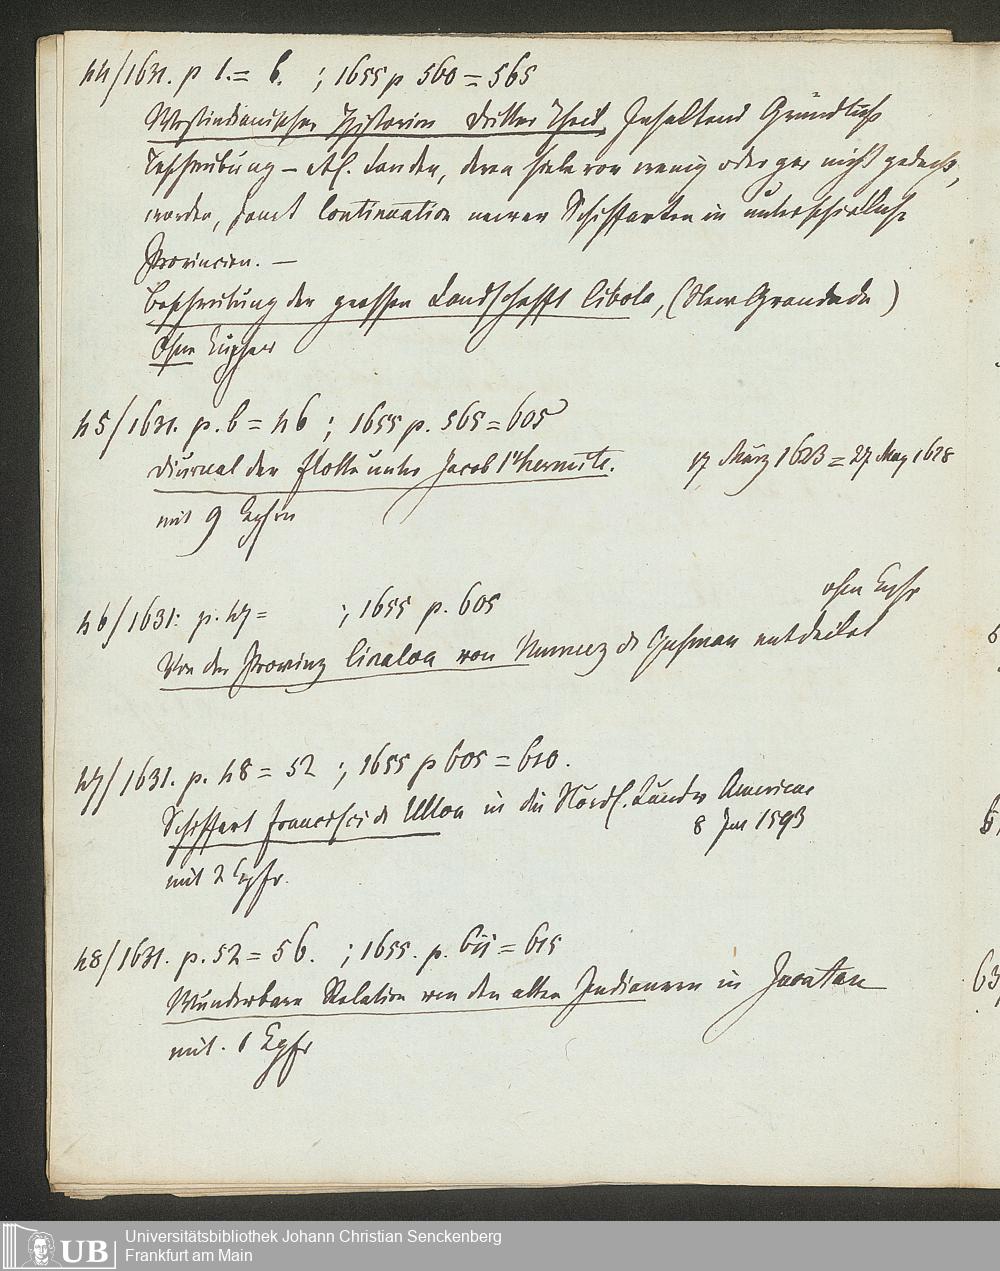 44/1631. p 1.= 6. ; 1655 p 560 = 565
Westindianischer Historien Dritter Theil, Inhaltend Gründliche
Beschreibung – etl. Landen, deren hiebevor wenig oder gar nicht gedacht,
worden, sampt Continuation newer Schiffarten in unterschiedliche
Provincien. —
Beschreibung der grossen Landschafft Cibola, (New Granada )
Ohne Kupfer
45/1631. p. 6 = 46 ; 1655 p. 565 = 605
Diurnal der Flotte unter Jacob l'hermite. 17 März 1623 = 27 May 1628
mit 9 Kpfrn
ohne Kupfr
46/1631: p. 47 = ; 1655 p. 605
Von der Provinz Cinaloa von Nunnez de Gusman entdeckt
47/1631. p. 48 = 52 ; 1655 p 605 = 610.
Schiffart Francisci de Ulloa in die Nördl. Länder Americae
8 Jul 1593
mit 2 Kpfr.
48/1631. p. 52 = 56. ; 1655. p. 611 = 615
Wunderbare Relation von den alten Indianern in Jucatan
mit. 1 Kpfr
63
UB
Universitätsbibliothek Johann Christian Senckenberg
Frankfurt am Main